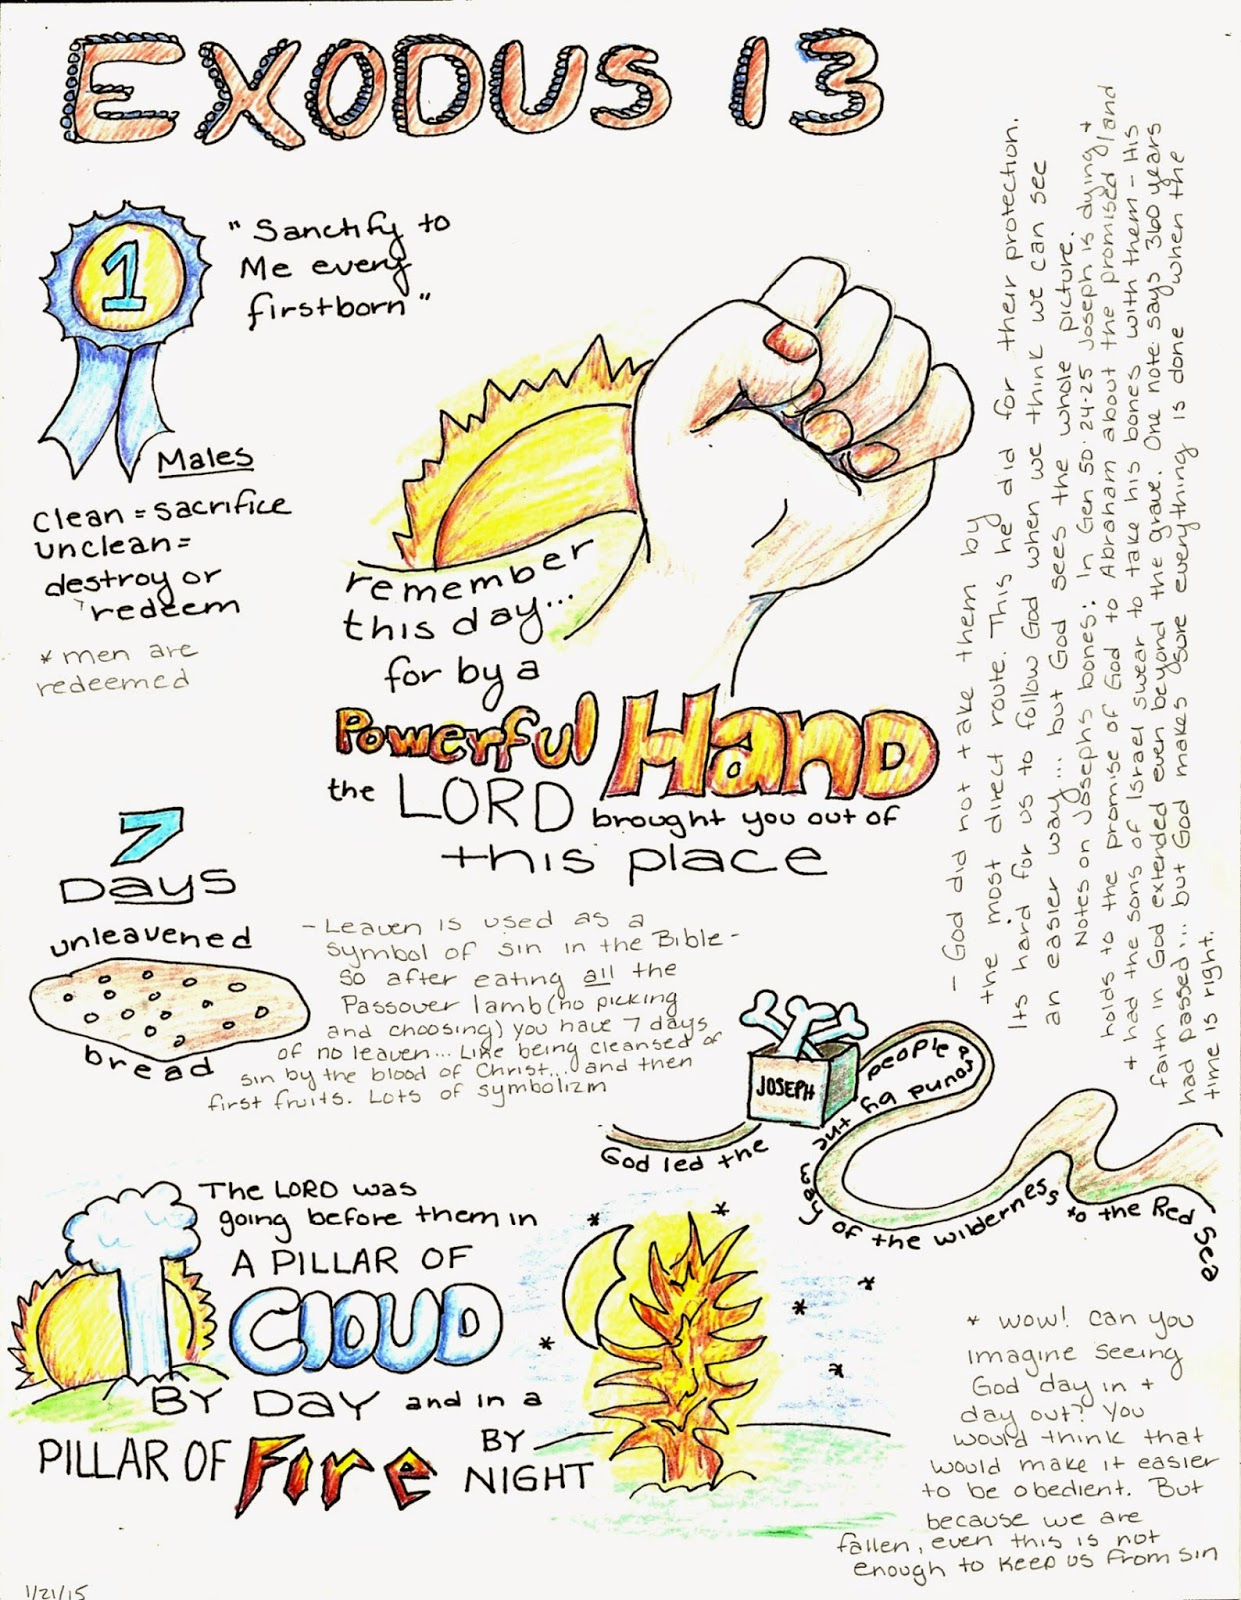 EXODUS 13
1
"Sanctify to
Me every
firstborn"
Males
clean = sacrifice
unclean =
destroy or
redeem
* men are
redeemed
remember
this day...
for by a
Powerful Hand
the LORD brought you out of
this place
7
Days
unleavened
bread
- Leaven is used as a
symbol of sin in the Bible -
so after eating all the
Passover lamb (no picking
and choosing) you have 7 days
of no leaven... Like being cleansed of
sin by the blood of Christ... and then
first fruits. Lots of symbolizm
- God did not take them by
the most direct route. This he did for their protection.
Its hard for us to follow God when we think we can see
an easier way... but God sees the whole picture.
Notes on Joseph's bones: In Gen 50:24-25 Joseph is dying +
holds to the promise of God to Abraham about the promised land
+ had the sons of Israel swear to take his bones with them - His
faith in God extended even beyond the grave. One note says 360 years
had passed... but God makes sure everything is done when the
time is right.
JOSEPH
God led the people around by the way of the wilderness to the Red See
The LORD was
going before them in
A PILLAR OF
CLOUD
BY DAY and in a
PILLAR OF Fire BY
NIGHT
* wow! can you
imagine seeing
God day in +
day out? You
would think that
would make it easier
to be obedient. But
because we are
fallen, even this is not
enough to keep us from sin
1/21/15